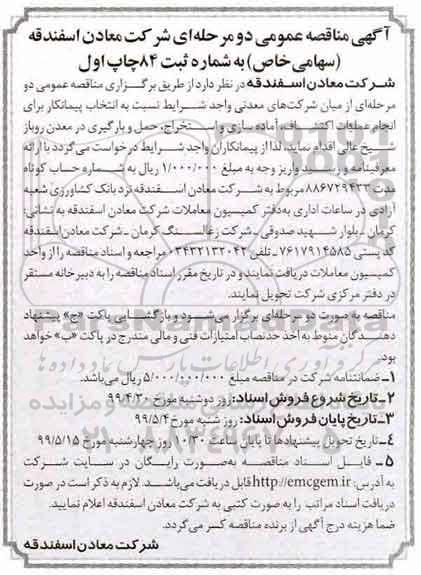 آگهی مناقصه عمومی دو مرحله‌ای شرکت معادن اسفندقه
(سهامی خاص) به شماره ثبت ۸۴ چاپ اول
شرکت معادن اسفندقه در نظر دارد از طریق برگزاری مناقصه عمومی دو
مرحله‌ای از میان شرکت‌های معدنی واجد شرایط نسبت به انتخاب پیمانکار برای
انجام عملیات اکتشاف، آماده سازی و استخراج، حمل و بارگیری در معدن روباز
شیخ عالی اقدام نماید، لذا از پیمانکاران واجد شرایط درخواست می‌گردد با ارائه
معرفینامه و رسید واریز وجه به مبلغ ۱/۰۰۰/۰۰۰ ریال به شماره حساب کوتاه
مدت ۸۸۶۷۲۹۴۳۳ مربوط به شرکت معادن اسفندقه نزد بانک کشاورزی شعبه
آزادی در ساعات اداری به‌دفتر کمیسیون معاملات شرکت معادن اسفندقه به نشانی:
کرمان ـ بلوار شهید صدوقی ـ شرکت زغالسنگ کرمان ـ شرکت معادن اسفندقه
کد پستی ۷۶۱۷۹۱۴۵۸۵ ـ تلفن ۰۳۴۳۲۱۳۳۰۴۲ مراجعه و اسناد مناقصه را از واحد
کمیسیون معاملات دریافت نمایند و در تاریخ مقرر اسناد مناقصه را به دبیرخانه مستقر
در دفتر مرکزی شرکت تحویل نمایند.
مناقصه به صورت دو مرحله‌ای برگزار می‌شود و بازگشایی پاکت «ج» پیشنهاد
دهندگان منوط به اخذ حدنصاب امتیازات فنی و مالی مندرج در پاکت «ب» خواهد
بود.
۱ـ ضمانتنامه شرکت در مناقصه مبلغ ۵/۰۰۰/۰۰۰/۰۰۰ ریال می‌باشد.
۲ـ تاریخ شروع فروش اسناد: روز دوشنبه مورخ ۹۹/۴/۳۰
۳ـ تاریخ پایان فروش اسناد: روز شنبه مورخ ۹۹/۵/۴
۴ـ تاریخ تحویل پیشنهادها تا پایان ساعت ۱۰/۳۰ روز چهارشنبه مورخ ۹۹/۵/۱۵
۵ـ فایل اسناد مناقصه به‌صورت رایگان در سایت شرکت
به آدرس: http://emcgem.ir قابل دریافت می‌باشد. لازم به ذکر است در صورت
دریافت اسناد مراتب را به صورت کتبی به شرکت معادن اسفندقه اعلام نمایید.
ضمنا هزینه درج آگهی از برنده مناقصه کسر می‌گردد.
شرکت معادن اسفندقه